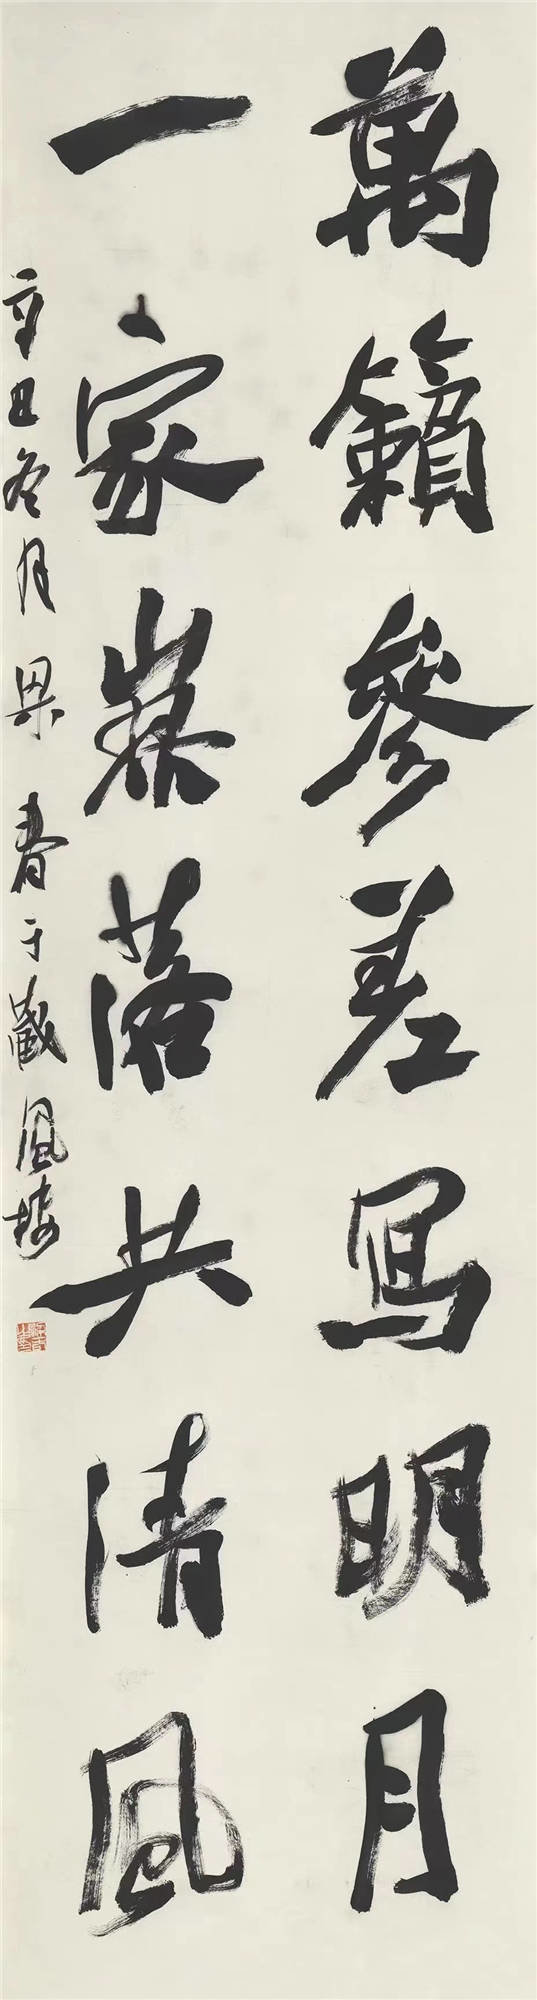 萬籟參差寫明月
一家落共清風
辛丑冬月果書于藏風樓